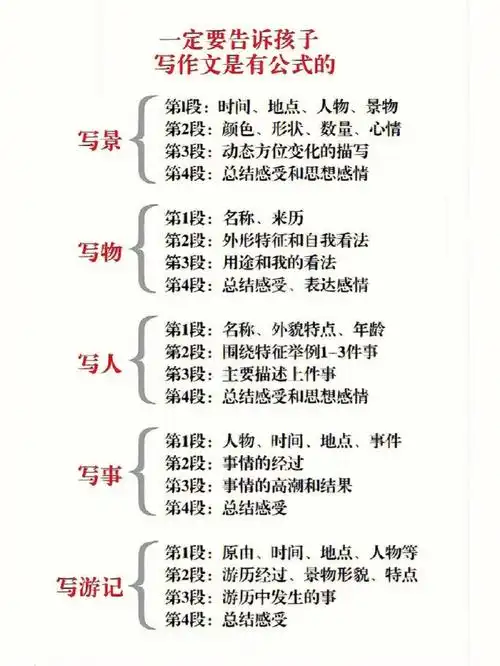 一定要告诉孩子
写作文是有公式的
写景
第1段：时间、地点、人物、景物
第2段：颜色、形状、数量、心情
第3段：动态方位变化的描写
第4段：总结感受和思想感情
写物
第1段：名称、来历
第2段：外形特征和自我看法
第3段：用途和我的看法
第4段：总结感受、表达感情
写人
第1段：名称、外貌特点、年龄
第2段：围绕特征举例1-3件事
第3段：主要描述上件事
第4段：总结感受和思想感情
写事
第1段：人物、时间、地点、事件
第2段：事情的经过
第3段：事情的高潮和结果
第4段：总结感受
写游记
第1段：原由、时间、地点、人物等
第2段：游历经过、景物形貌、特点
第3段：游历中发生的事
第4段：总结感受